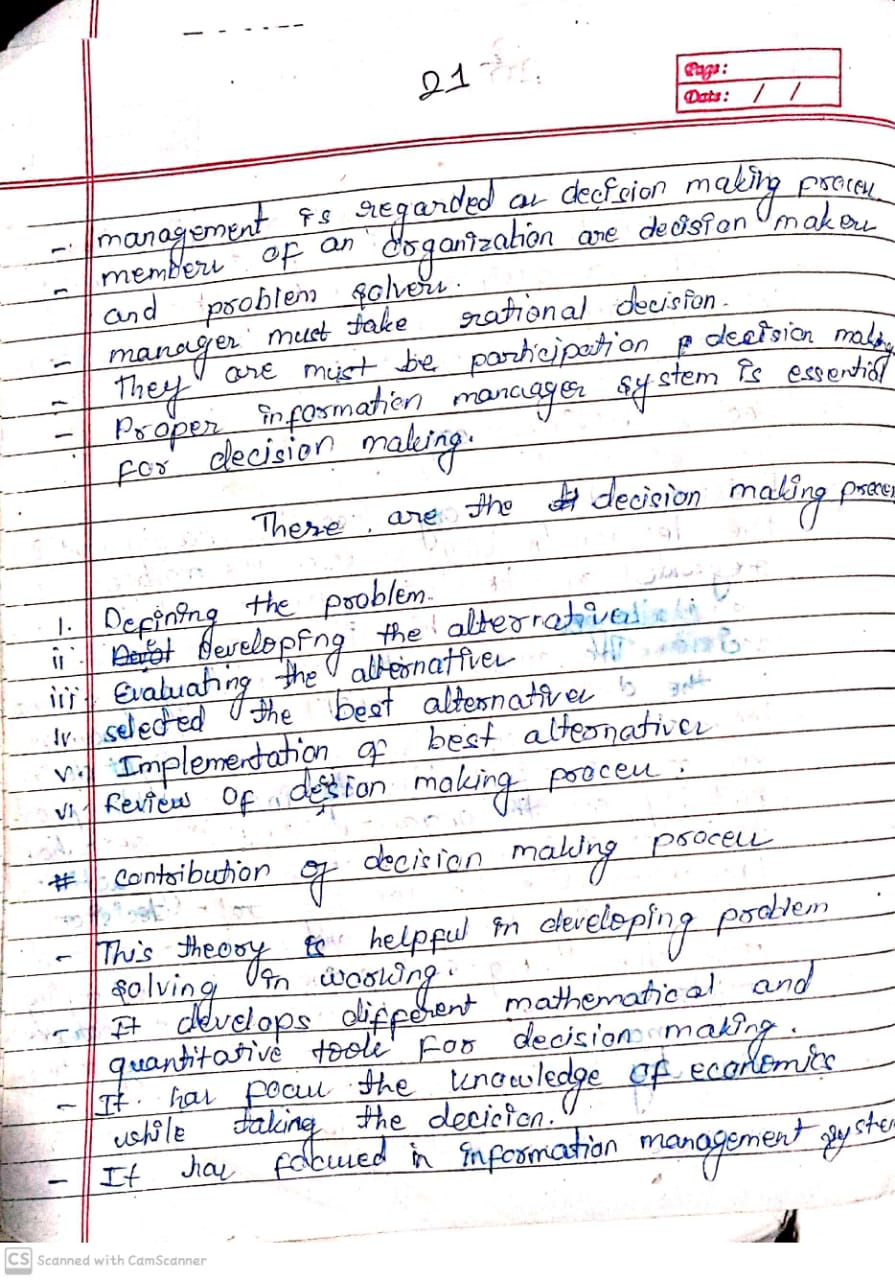 21
Page:
Date: / /
- management is regarded as decision making process
- members of an organization are decision makers
and problem solvers.
- manager must take rational decision.
- They are must be participation decision making
- Proper information manager system is essential
for decision making.
There are the decision making process
1. Defining the problem.
ii Developing the alternatives
iii. Evaluating the alternatives
iv. selected the best alternatives
v. Implementation of best alternatives
vi Review of desion making process.
# contribution of decision making process
- This theory is helpful in developing problem
solving in working.
- It develops different mathematical and
quantitative tools for decision making.
- It has focus the knowledge of economics
while taking the decicion.
- It has focused in information management system
CS Scanned with CamScanner